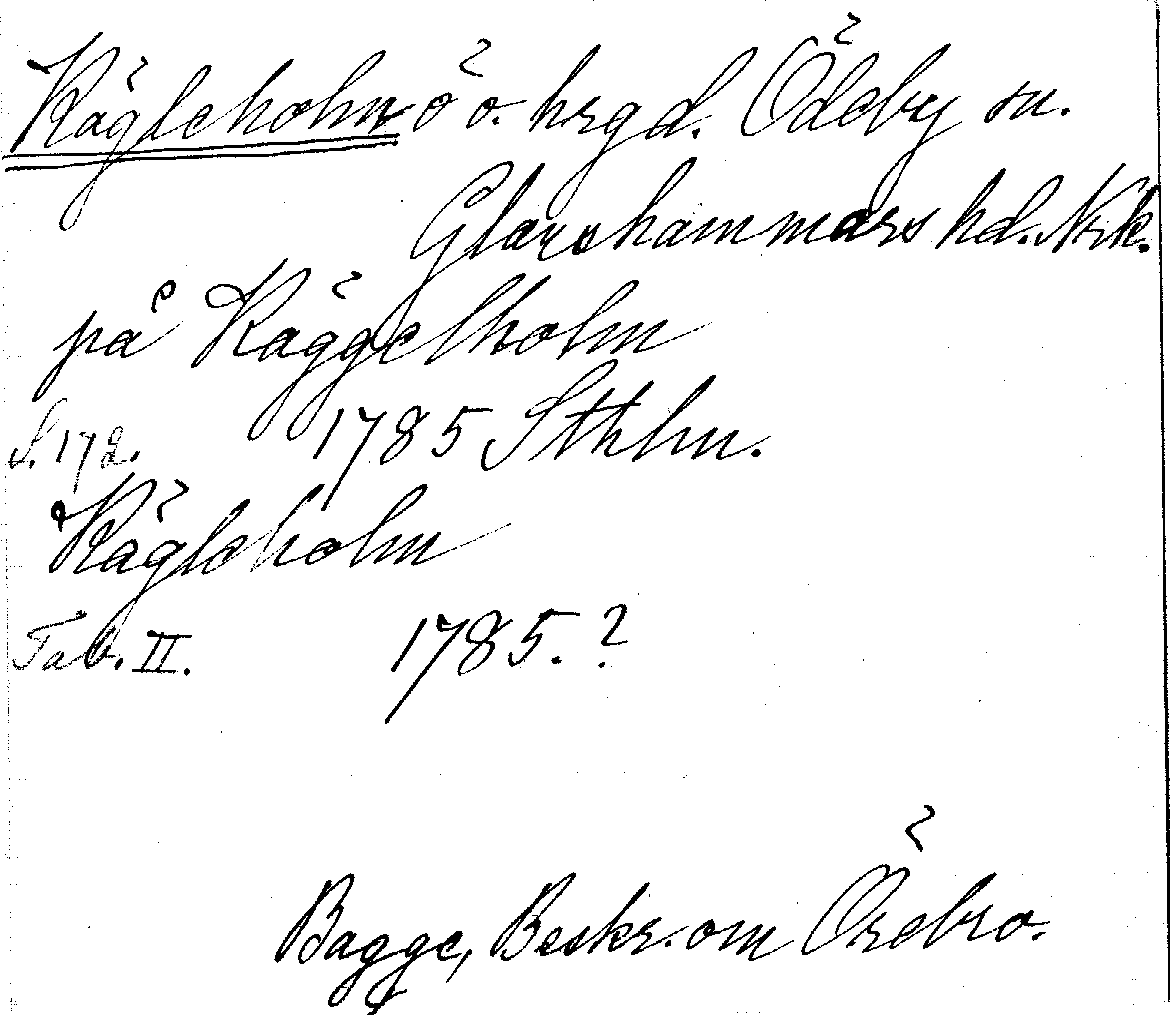 Kägleholm ö o. hrgd. Ödeby sn.
Glanshammars hd. Nrk.
på Käggelholm
S. 172. 1785 Sthlm.
Kägleholm
Tab. II. 1785.?
Bagge, Beskr. om Örebro.